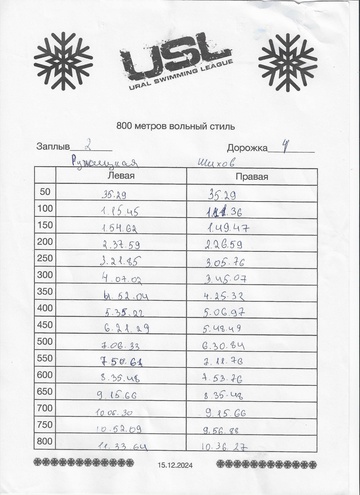 USL
URAL SWIMMING LEAGUE
800 метров вольный стиль
Заплыв 2 Дорожка 4
Ружицкая Шихов
Левая Правая
50 35.29 35.29
100 1.15.45
150 1.54.62 1.49.47
200 2.37.59 2.26.59
250 3.21.85 3.05.76
300 4.07.02 3.45.07
350 4.52.04 4.25.32
400 5.35.22 5.06.97
450 6.21.29 5.48.49
500 7.06.33 6.30.84
550 7.50.61
600 8.35.48 7.53.76
650 9.15.66 8.35.48
700 10.06.30 9.15.66
750 10.52.09 9.56.88
800 11.33.64 10.36.27
15.12.2024